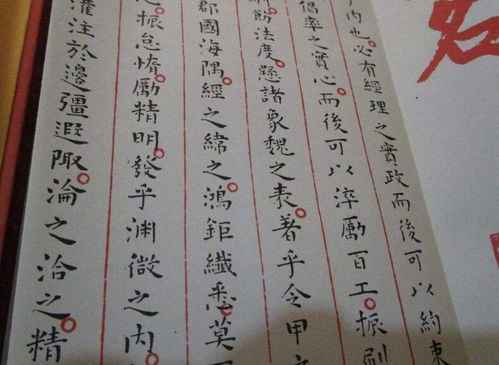 内也必有經理之實政而後可以約束
倡率之實心而後可以淬勵百工振刷
飭法度懸諸象魏之表著乎令甲之
郡國海隅經之緯之鴻鉅纖悉莫
振怠惰勵精明發乎淵微之内
灌注於邊疆遐陬淪之洽之精